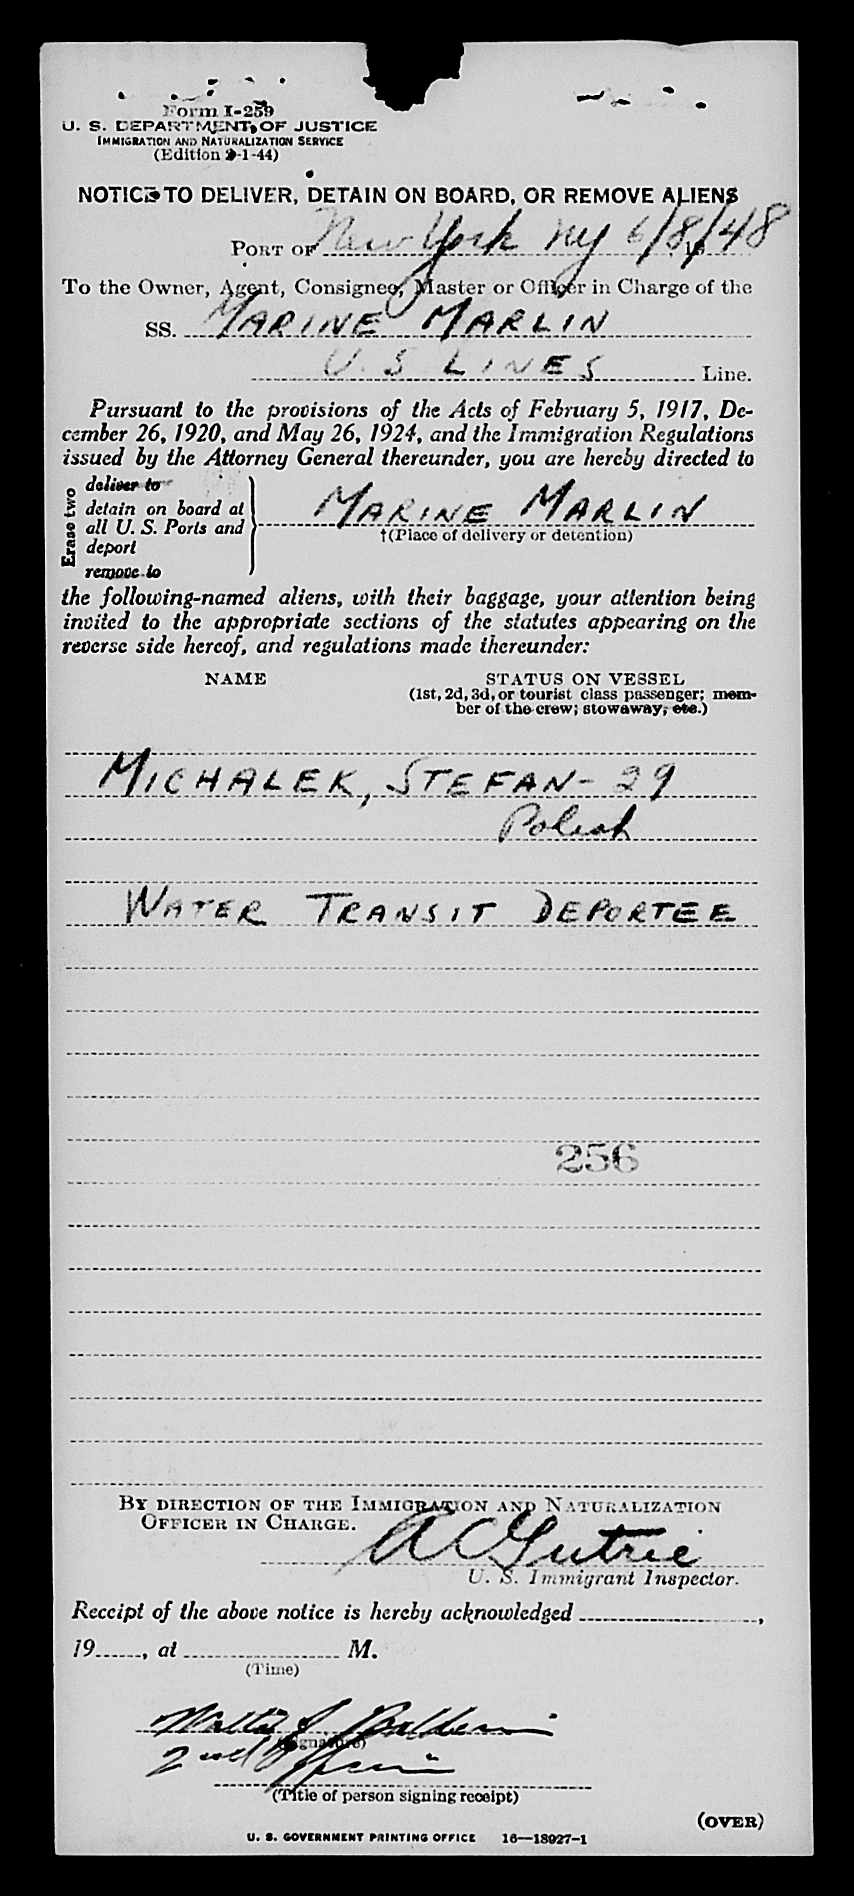 Form I-259
U. S. DEPARTMENT OF JUSTICE
IMMIGRATION AND NATURALIZATION SERVICE
(Edition 2-1-44)
NOTICE TO DELIVER, DETAIN ON BOARD, OR REMOVE ALIENS
PORT OF New York NY 6/8/48
To the Owner, Agent, Consignee, Master or Officer in Charge of the
SS. MARINE MARLIN
U. S LINES Line.
Pursuant to the provisions of the Acts of February 5, 1917, De-
cember 26, 1920, and May 26, 1924, and the Immigration Regulations
issued by the Attorney General thereunder, you are hereby directed to
Erase two
deliver to
detain on board at
all U. S. Ports and
deport
remove to
MARINE MARLIN
†(Place of delivery or detention)
the following-named aliens, with their baggage, your attention being
invited to the appropriate sections of the statutes appearing on the
reverse side hereof, and regulations made thereunder:
NAME STATUS ON VESSEL
(1st, 2d, 3d, or tourist class passenger; mem-
ber of the crew; stowaway, etc.)
MICHALEK, STEFAN - 29
Polish
WATER TRANSIT DEPORTEE
256
BY DIRECTION OF THE IMMIGRATION AND NATURALIZATION
OFFICER IN CHARGE.
A C Gutrie
U. S. Immigrant Inspector.
Receipt of the above notice is hereby acknowledged ,
19 , at M.
(Time)
Walter J
(Signature)
2nd
(Title of person signing receipt)
(OVER)
U. S. GOVERNMENT PRINTING OFFICE 16—18927-1